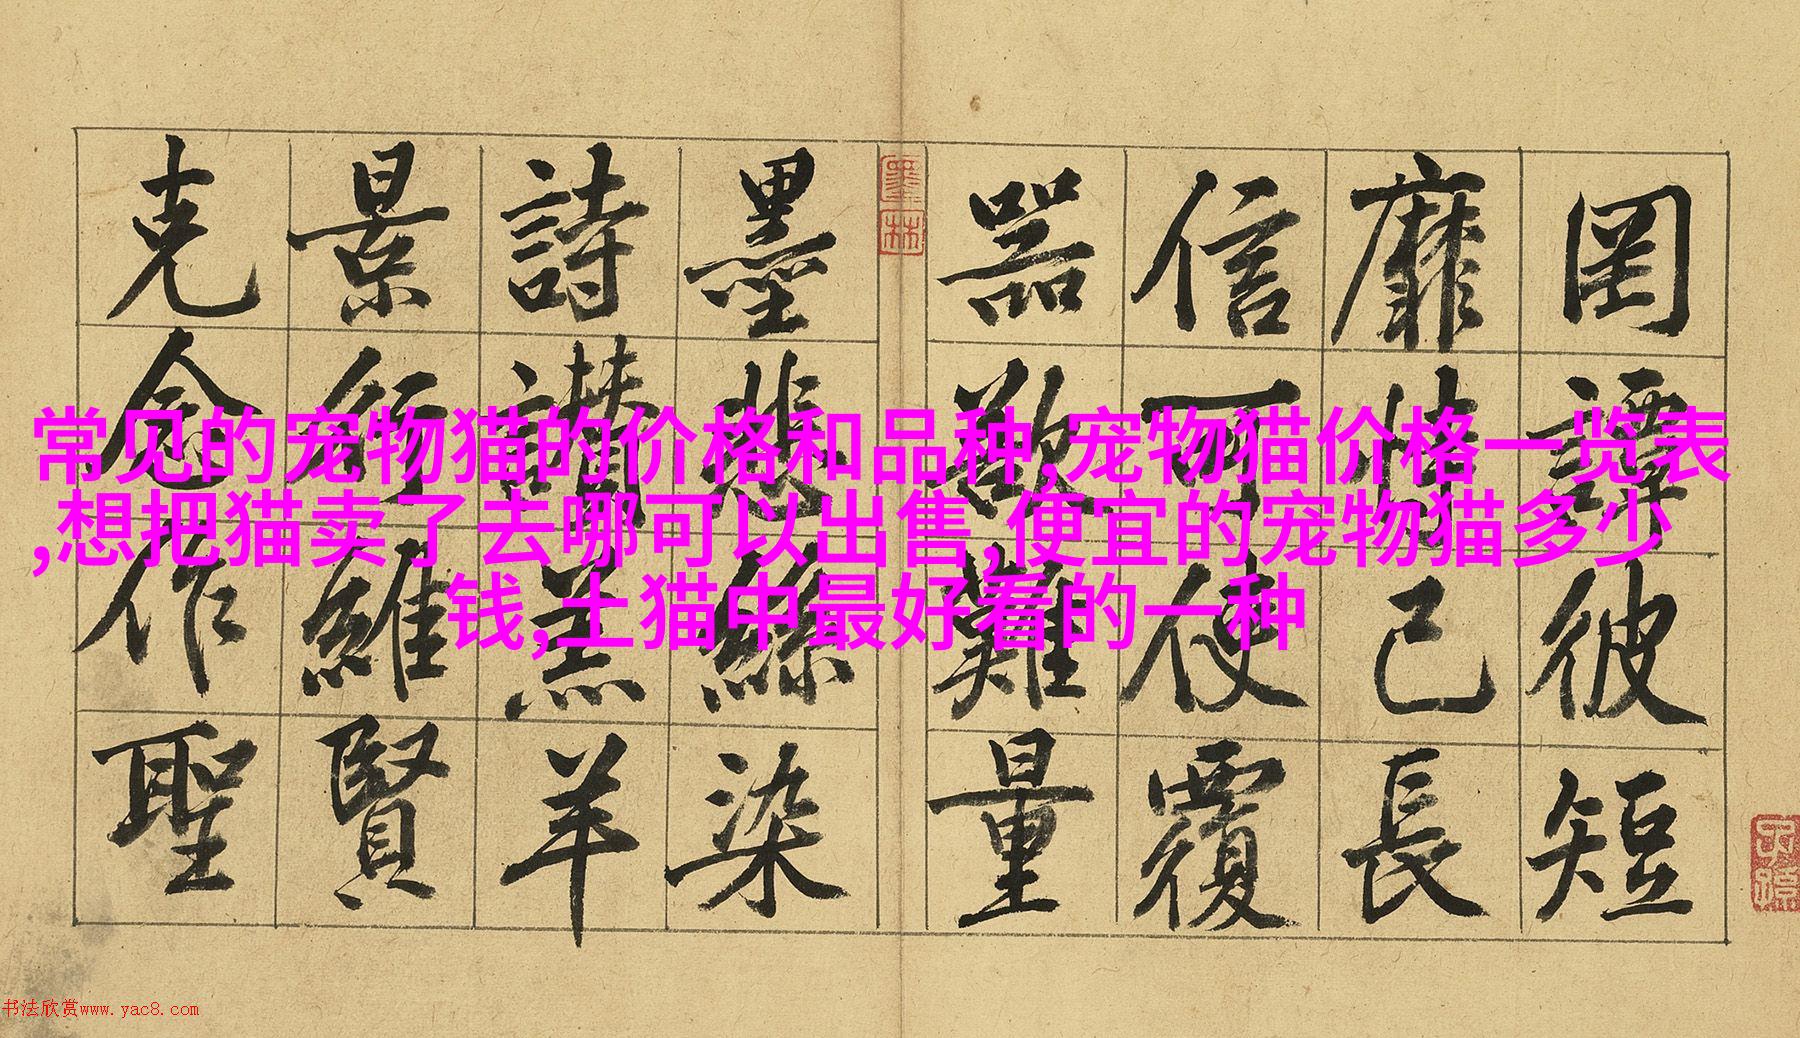 罔談彼短
靡恃己長
信可使覆
器欲難量
墨悲絲染
詩讚羔羊
景行維賢
克念作聖
墨林
子孫
常见的宠物猫的价格和品种,宠物猫价格一览表
,想把猫卖了去哪可以出售,便宜的宠物猫多少
钱,土猫中最好看的一种
书法欣赏www.yac8.com